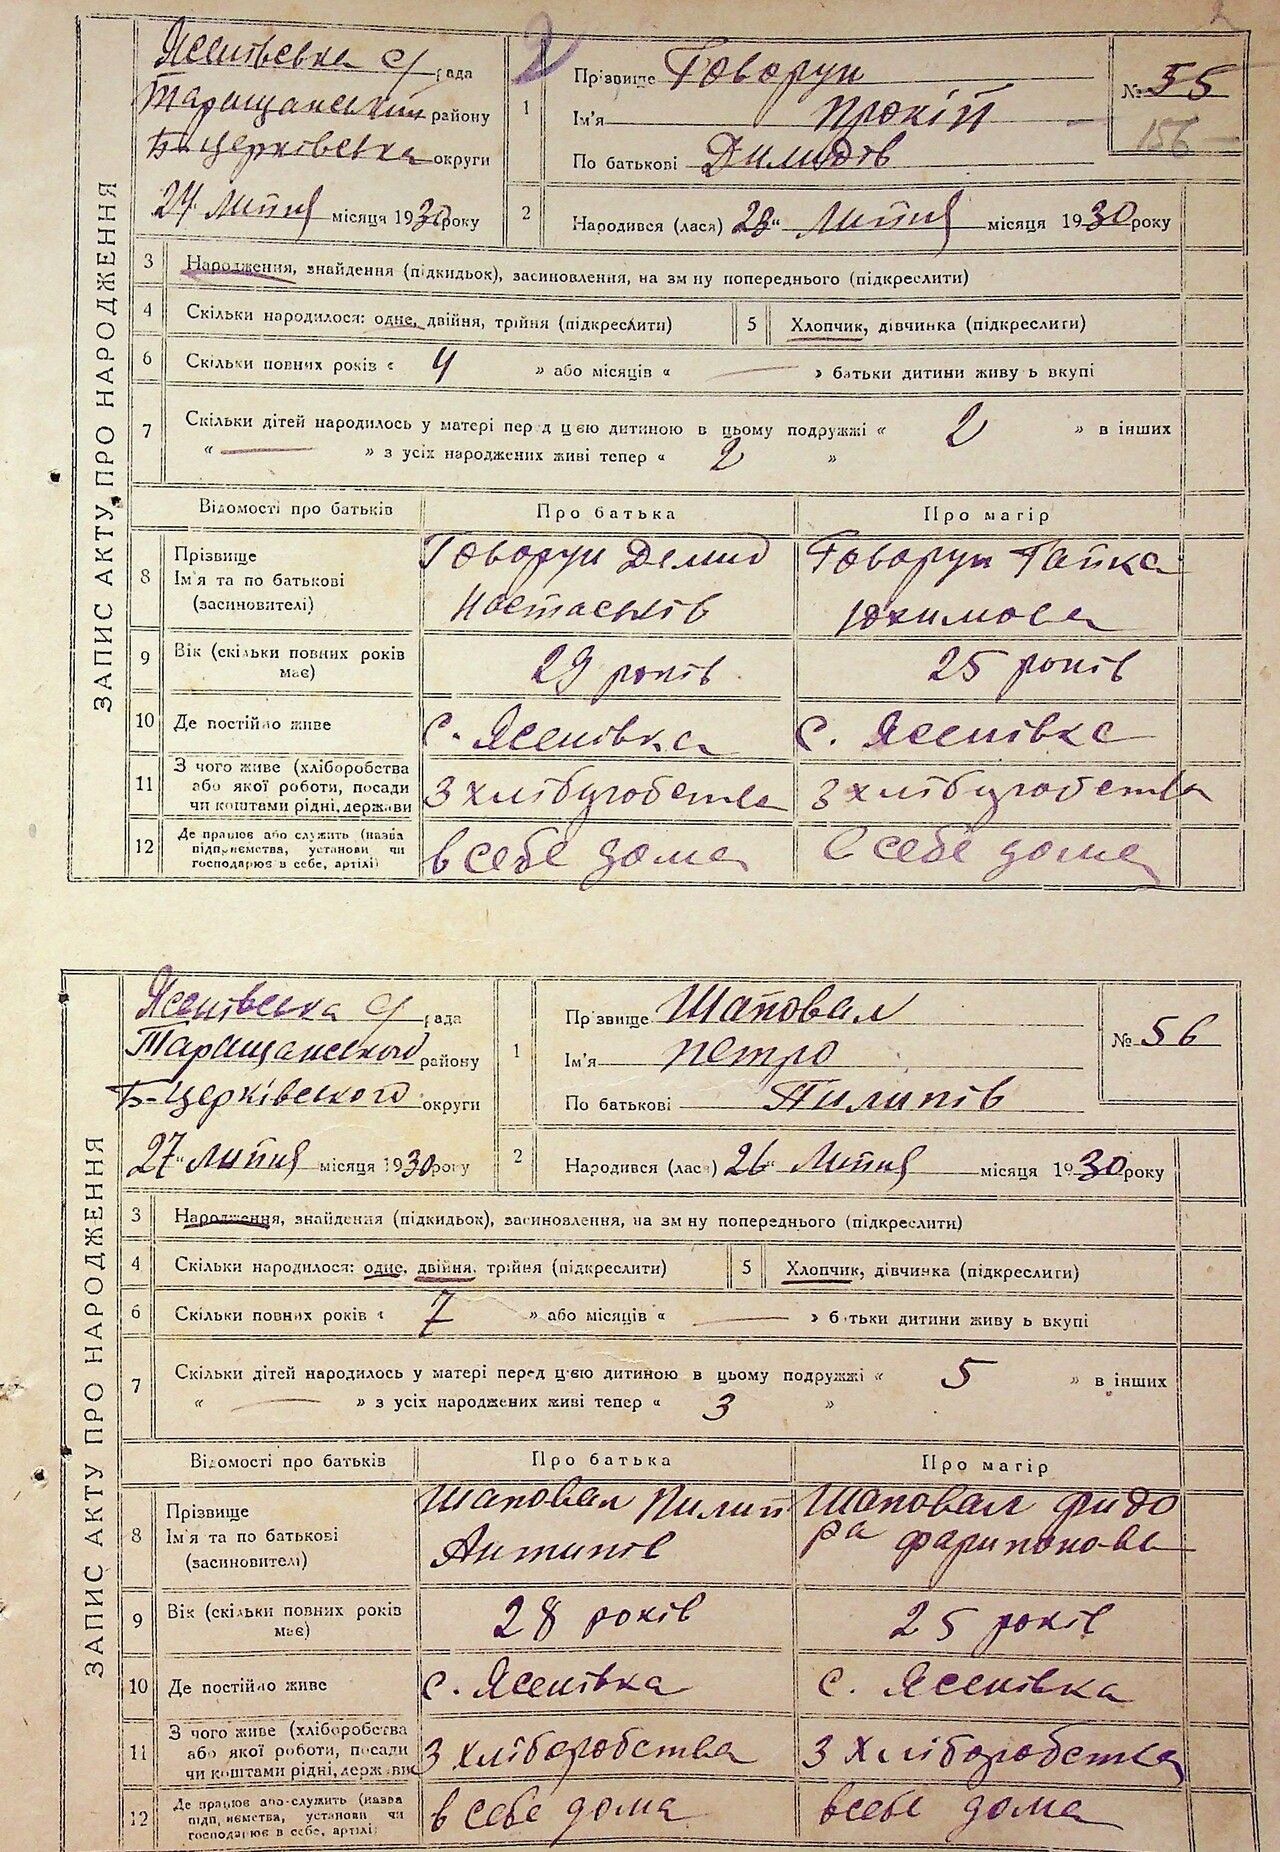 ЗАПИС АКТУ ПРО НАРОДЖЕННЯ
Ясенівська с/рада
Таращанський району
Б-Церківська округи
27 Липня місяця 1930 року
2
1
Прізвище Говорун
Ім'я Прокіп
По батькові Дилидів
№ 55
156
2
Народився (лася) 23 " Липня місяця 1930 року
3 Народження, знайдення (підкидьок), засиновлення, на зм ну попереднього (підкреслити)
4 Скільки народилося: одне, двійня, трійня (підкреслити) 5 Хлопчик, дівчинка (підкреслити)
6 Скільки повних років « 4 » або місяців « — » батьки дитини живу ь вкупі
7 Скільки дітей народилось у матері пер д ц єю дитиною в цьому подружжі « 2 » в інших
« — » з усіх народжених живі тепер « 2 »
Відомості про батьків Про батька Про матір
8 Прізвище Ім'я та по батькові (засиновителі) Говорун Демид Говорун Гапка
Юхимова
9 Вік (скільки повних років має) 29 років 25 років
10 Де постійно живе с. Ясенівка с. Ясенівка
11 З чого живе (хліборобства або якої роботи, посади чи коштами рідні, держави З хліборобства З хліборобства
12 Де працює або служить (назва підприємства, установи чи господарює в себе, артілі) в себе дома в себе дома
ЗАПИС АКТУ ПРО НАРОДЖЕННЯ
Ясенівська с/рада
Таращанського району
Б-Церківського округи
27 " Липня місяця 1930 року
1
Прізвище Шаповал
Ім'я Петро
По батькові Пилипів
№ 56
2
Народився (лася) 26 " Липня місяця 1930 року
3 Народження, знайдення (підкидьок), засиновлення, на зм ну попереднього (підкреслити)
4 Скільки народилося: одне, двійня, трійня (підкреслити) 5 Хлопчик, дівчинка (підкреслити)
6 Скільки повних років « 7 » або місяців « — » батьки дитини живу ь вкупі
7 Скільки дітей народилось у матері перед цією дитиною в цьому подружжі « 5 » в інших
« — » з усіх народжених живі тепер « 3 »
Відомості про батьків Про батька Про матір
8 Прізвище Ім'я та по батькові (засиновителі) Шаповал Пилип Шаповал Фидо
Антипів ра
9 Вік (скільки повних років має) 28 років 25 років
10 Де постійно живе с. Ясенівка с. Ясенівка
11 З чого живе (хліборобства або якої роботи, посади чи коштами рідні, держави З хліборобства З хліборобства
12 Де працює або служить (назва підприємства, установи чи господарює в себе, артілі) в себе дома в себе дома